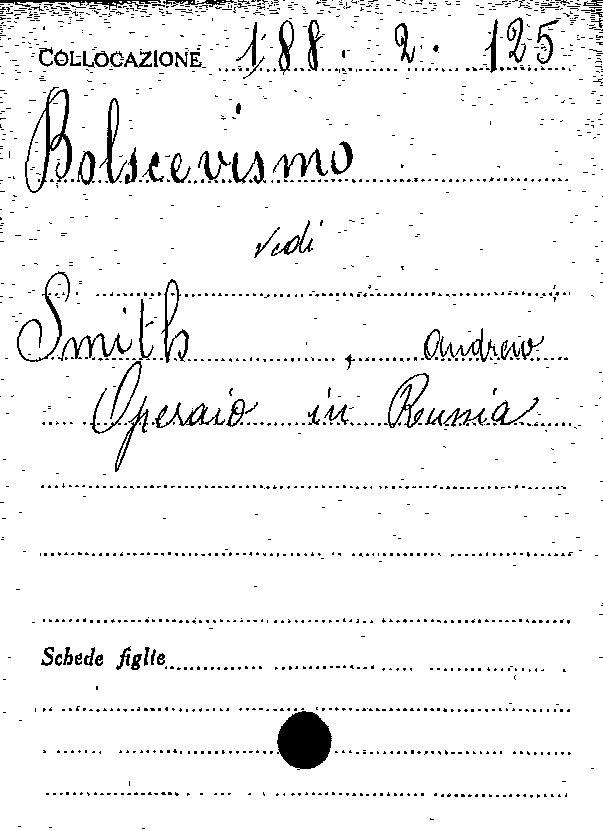 COLLOCAZIONE 188. 2. 125
Bolscevismo
vedi
Smith, Andrew
Operaio in Russia
Schede figlie